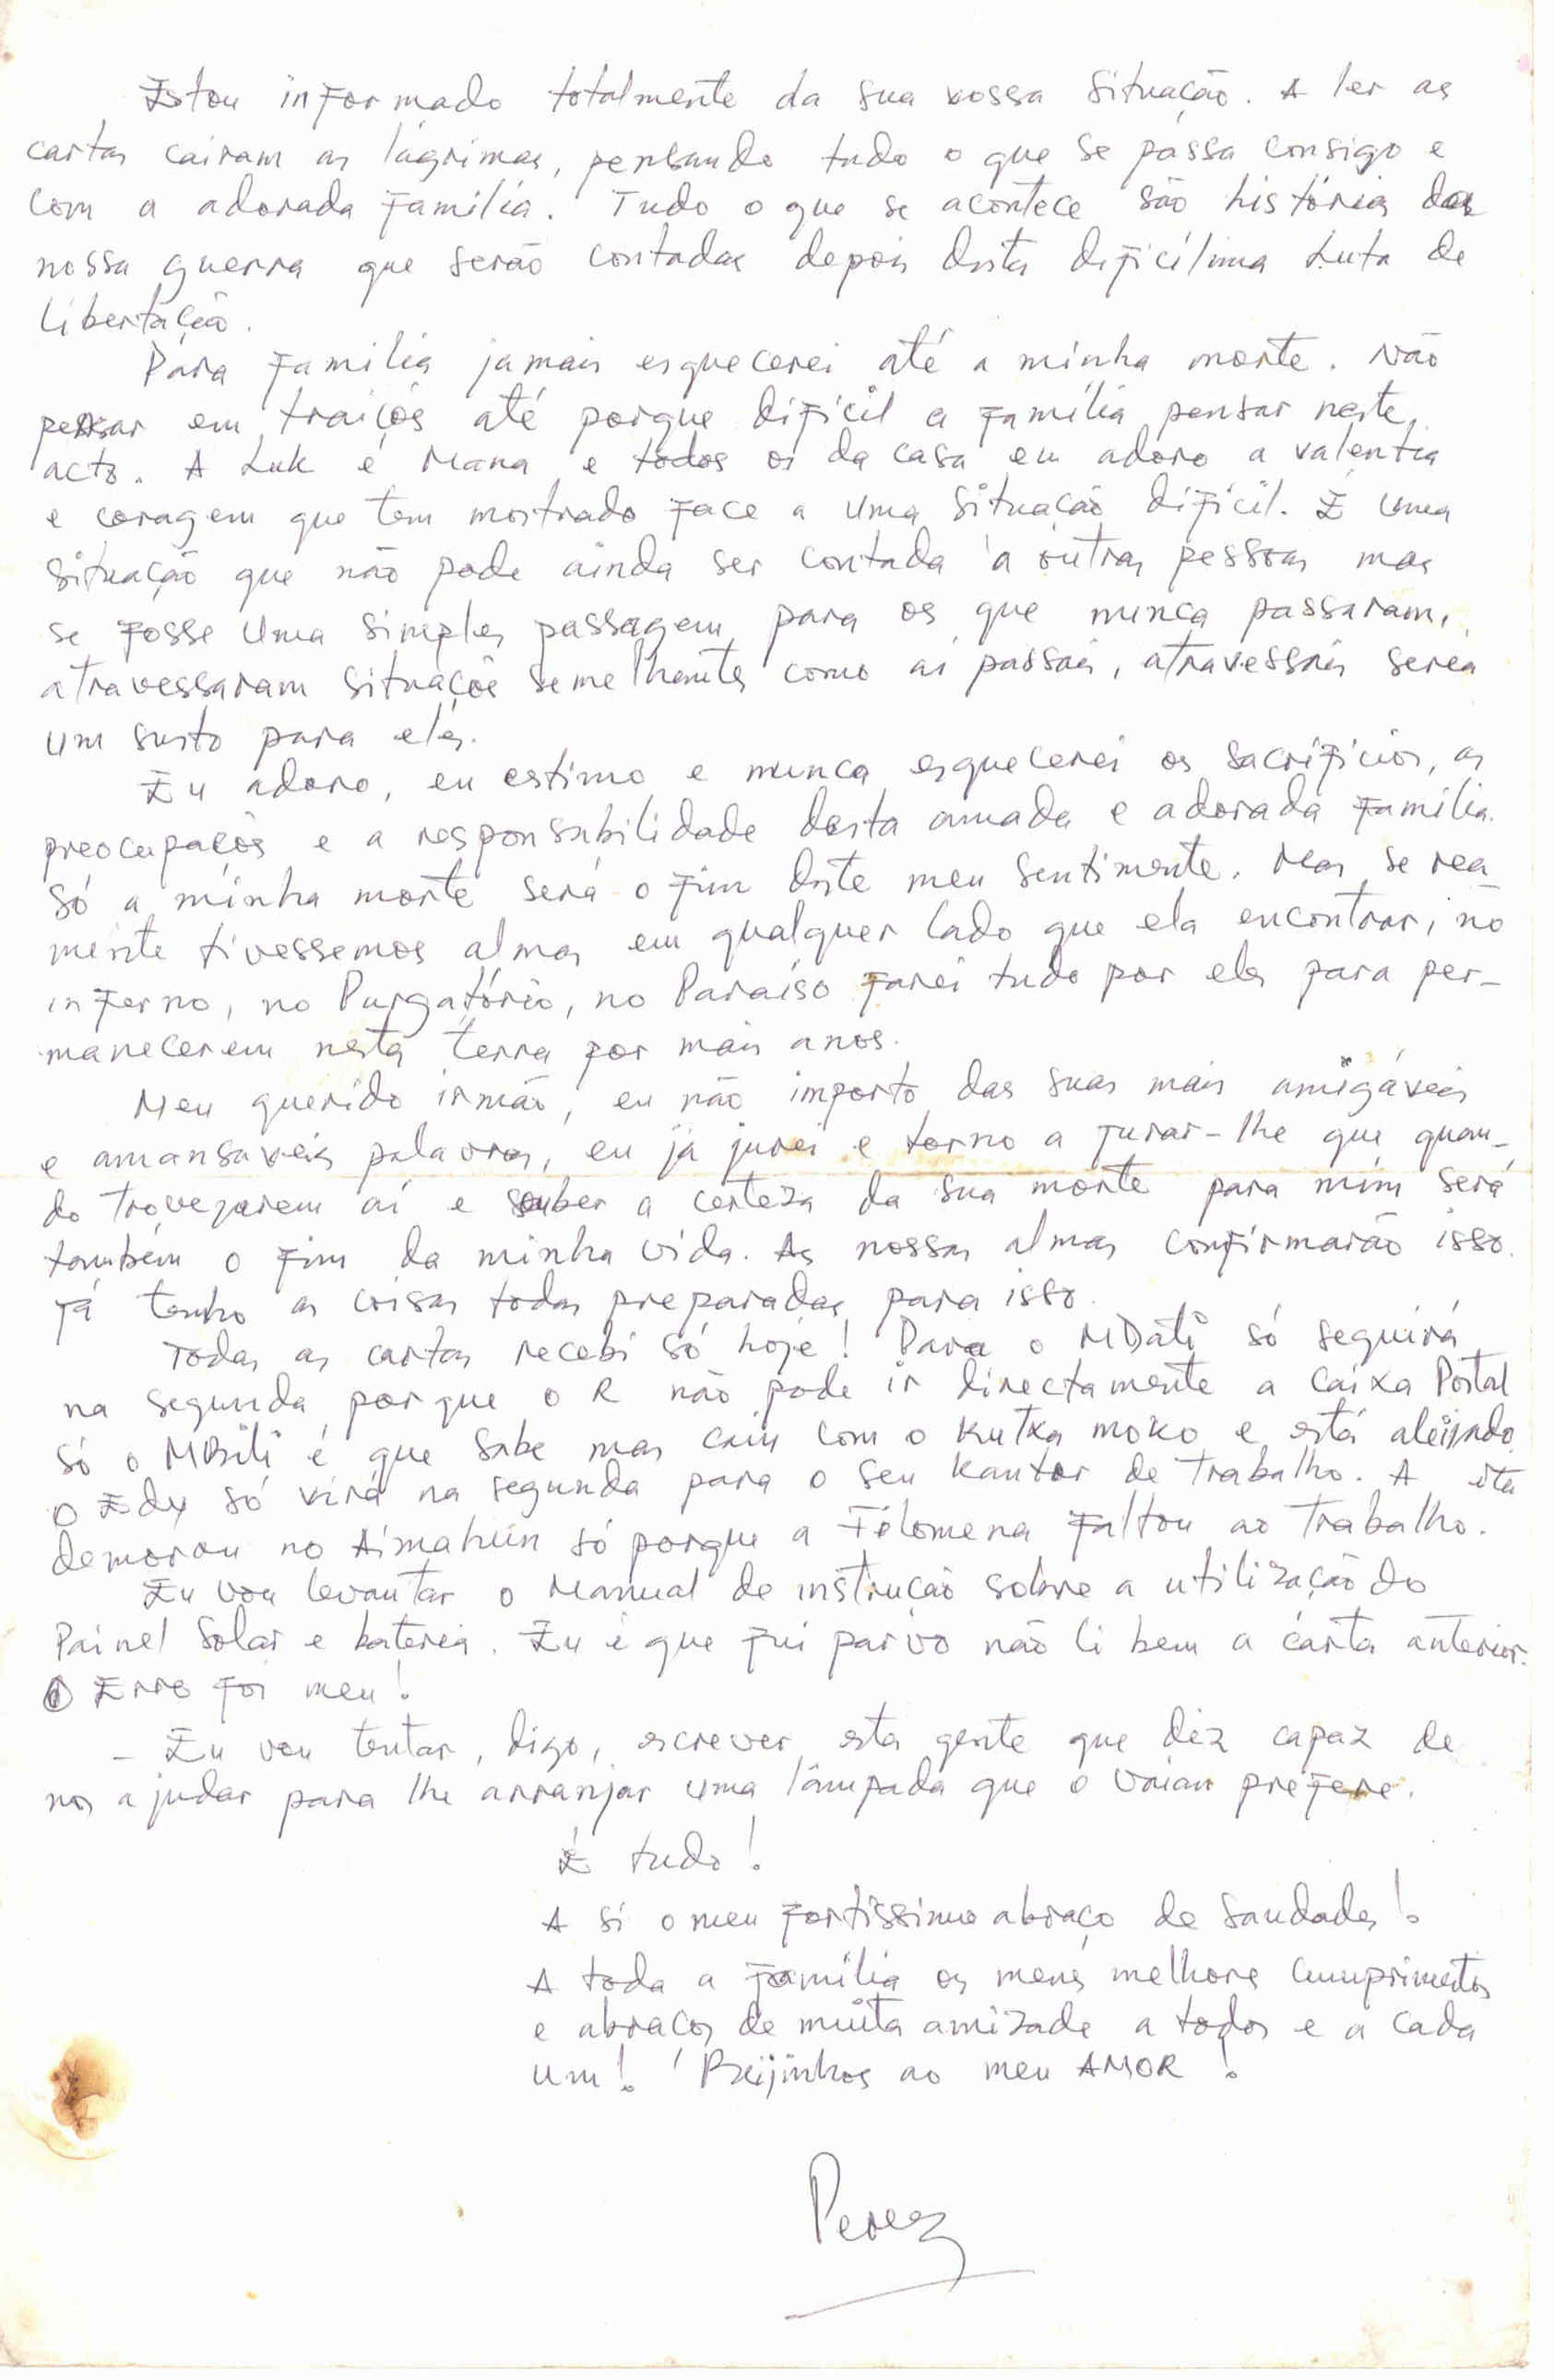 Estou informado totalmente da sua vossa situação. A ler as
cartas cairam as lágrimas, pensando tudo o que se passa consigo e
com a adorada família. Tudo o que se acontece são histórias das
nossa guerra que serão contadas depois desta dificílima Luta de
Libertação.
Para família jamais esquecerei até a minha morte. Não
pensar em traiçõs até porque difícil a família pensar neste
acto. A Luk e Mana e todos os da casa eu adoro a valentia
e coragem que tem mostrado face a uma situação difícil. É uma
situação que não pode ainda ser contada à outras pessoas mas
se fosse uma simples passagem para os que nunca passaram,
atravessaram situaçõe semelhantes como aí passais, atravessais serea
um susto para eles.
Eu adoro, eu estimo e nunca esquecerei os sacrifícios, as
preocupaçõs e a responsabilidade desta amada e adorada família.
Só a minha morte será o fim deste meu sentimente. Mas se rea
mente tivessemos almas em qualquer lado que ela encontrar, no
inferno, no Purgatório, no Paraíso farei tudo por eles para per-
manecerem nesta terra por mais anos.
Meu querido irmão, eu não importo das suas mais amigáveis
e amansaveis palavras, eu já jurei e torno a jurar-lhe que quan-
do trovejarem aí e souber a certeza da sua morte para mim será
também o fim da minha vida. As nossas almas confirmarão isso.
Já tenho as coisas todas preparadas para isso.
Todas as cartas recebi só hoje! Para o MDati só seguirá
na segunda porque o R não pode ir directamente a Caixa Postal
só o MBili é que sabe mas caiu com o Kutxa moko e está aleijado.
O Edy só virá na segunda para o seu Kantor de trabalho. A ita
demorou no Aimahun só porque a Filomena faltou ao trabalho.
Eu vou levantar o Manual de instrução sobre a utilização do
Painel Solar e bateria. Eu é que fui parvo não li bem a carta anterior.
O Erro foi meu!
- Eu vou tentar, digo, escrever esta gente que diz capaz de
nos ajudar para lhe arranjar uma lâmpada que o Vaian prefere.
É tudo!
A si o meu fortíssimo abraço de Saudades!
A toda a família os meus melhores cumprimentos
e abraços de muita amizade a todos e a cada
um! Beijinhos ao meu AMOR!
Perez